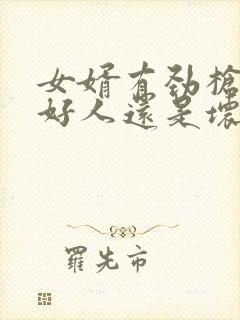 女婿有劲槍
好人還是壞
羅先市